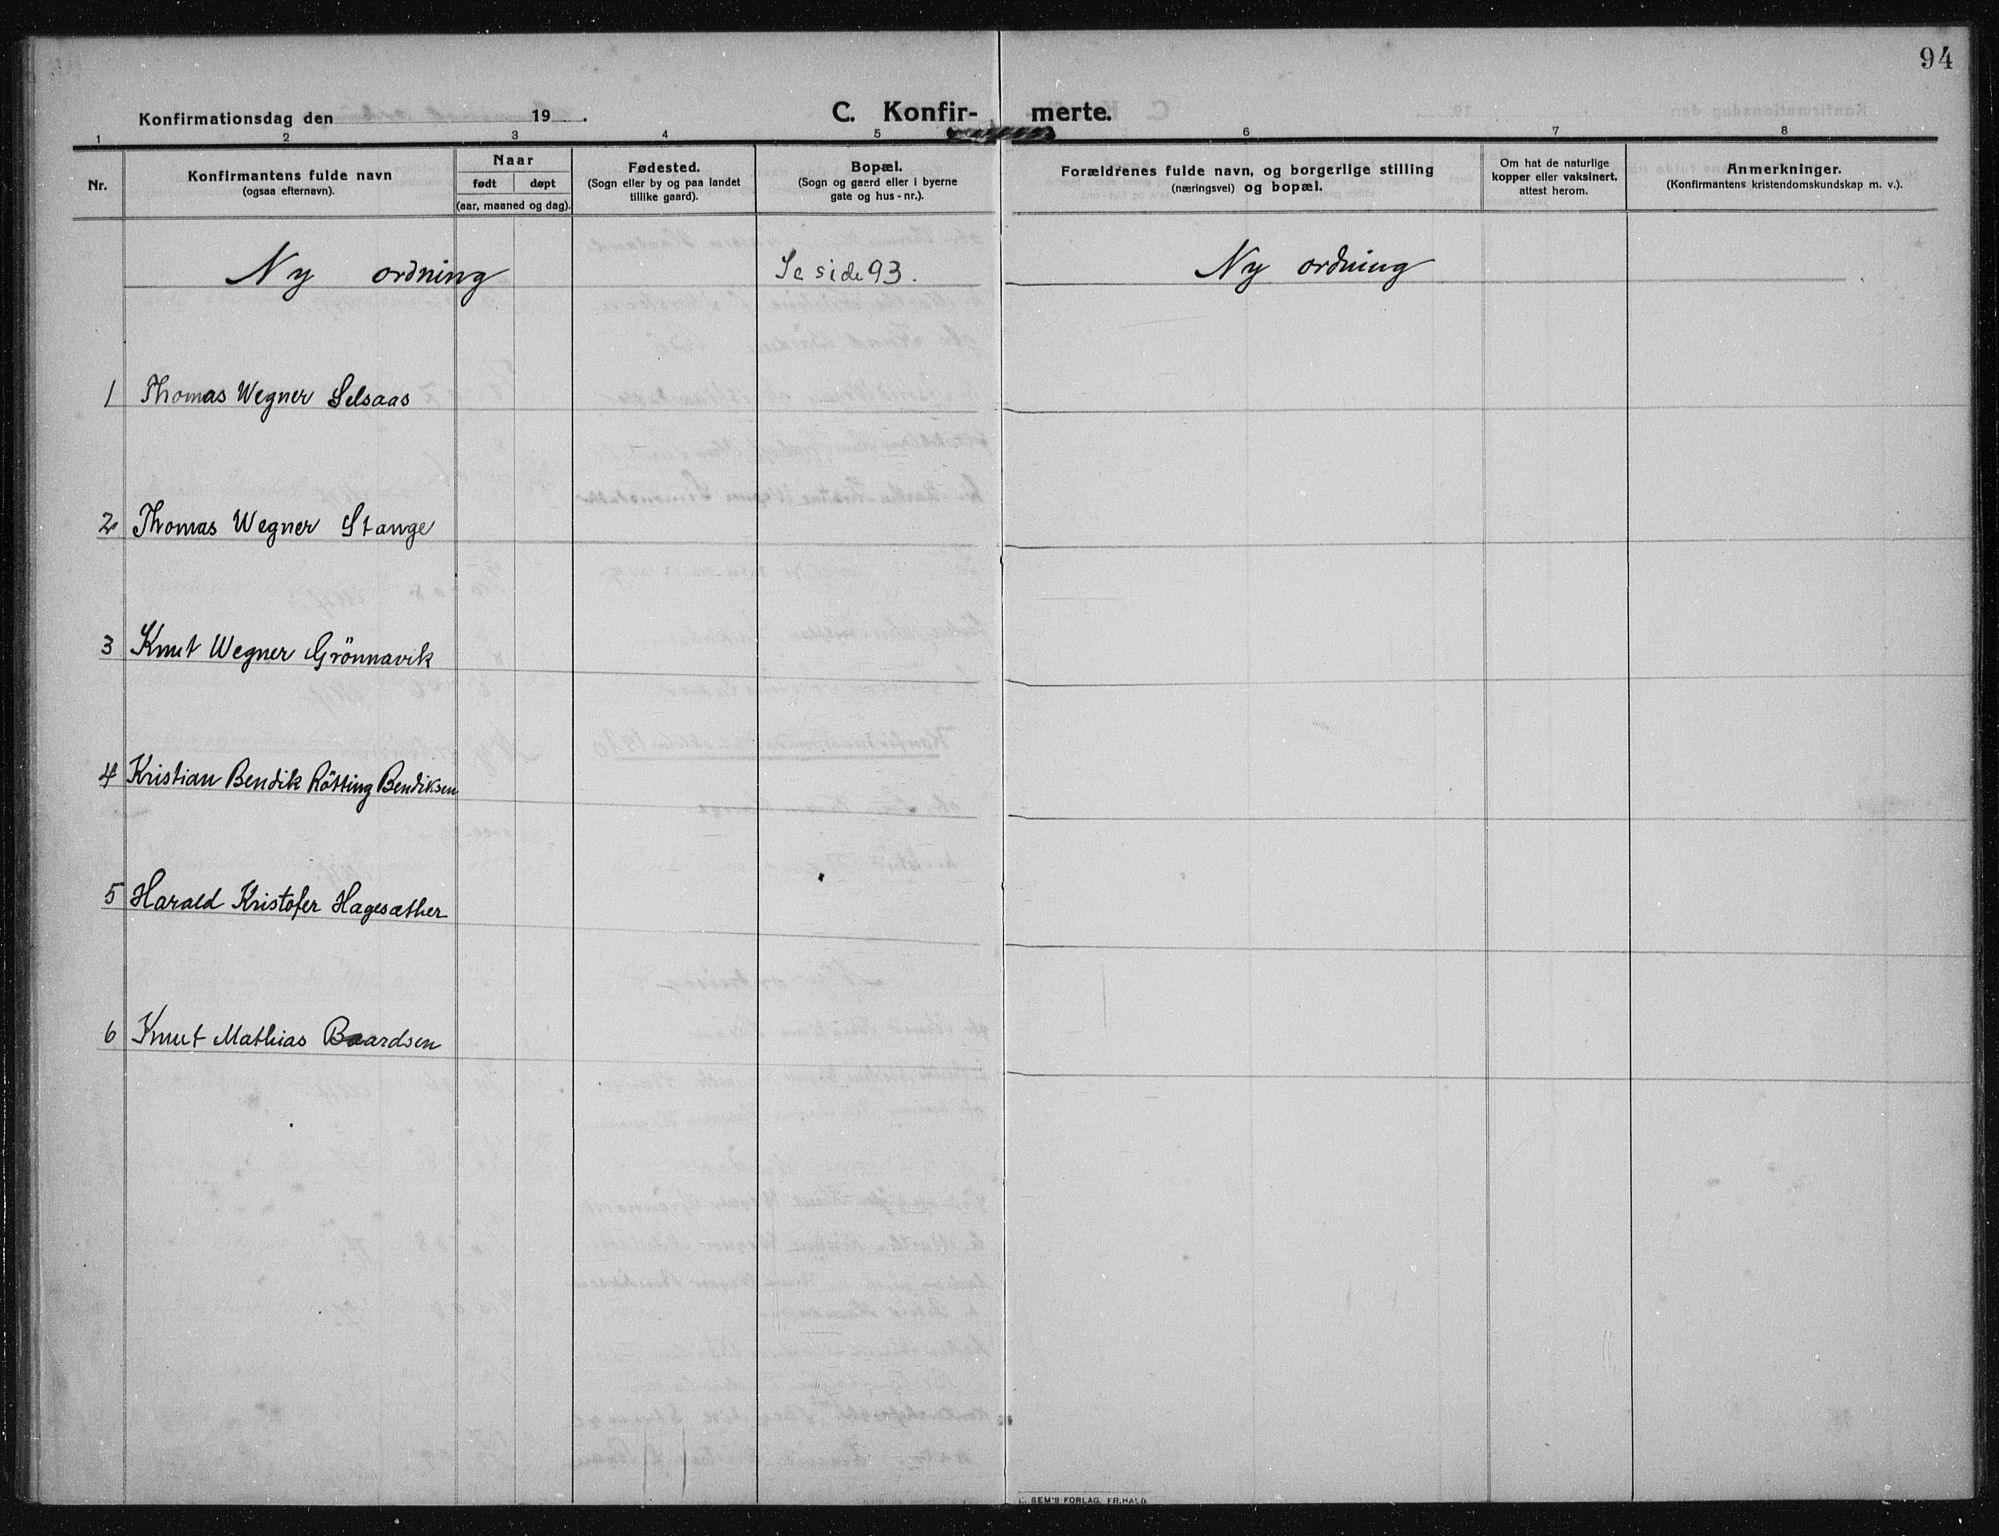 94
Konfirmationsdag den 19 .
C. Konfir- merte.
1 2 3 4 5 6 7 8
Nr.
Konfirmantens fulde navn
(ogsaa efternavn).
Naar
født døpt
(aar, maaned og dag).
Fødested.
(Sogn eller by og paa landet
tillike gaard).
Bopæl.
(Sogn og gaard eller i byerne
gate og hus-nr.).
Forældrenes fulde navn, og borgerlige stilling
(næringsvei) og bopæl.
Om hat de naturlige
kopper eller vaksinert.
attest herom.
Anmerkninger.
(Konfirmantens kristendomskundskap m. v.).
Ny ordning Se side 93. Ny ordning
1 Thomas Wegner Selsaas
2 Thomas Wegner Stange
3 Knut Wegner Grönnavik
4 Kristian Bendik Rötting Bendiksen
5 Harald Kristofer Hagesæther
6 Knut Mathias Baardsen
SEM'S FORLAG, FR.HALD